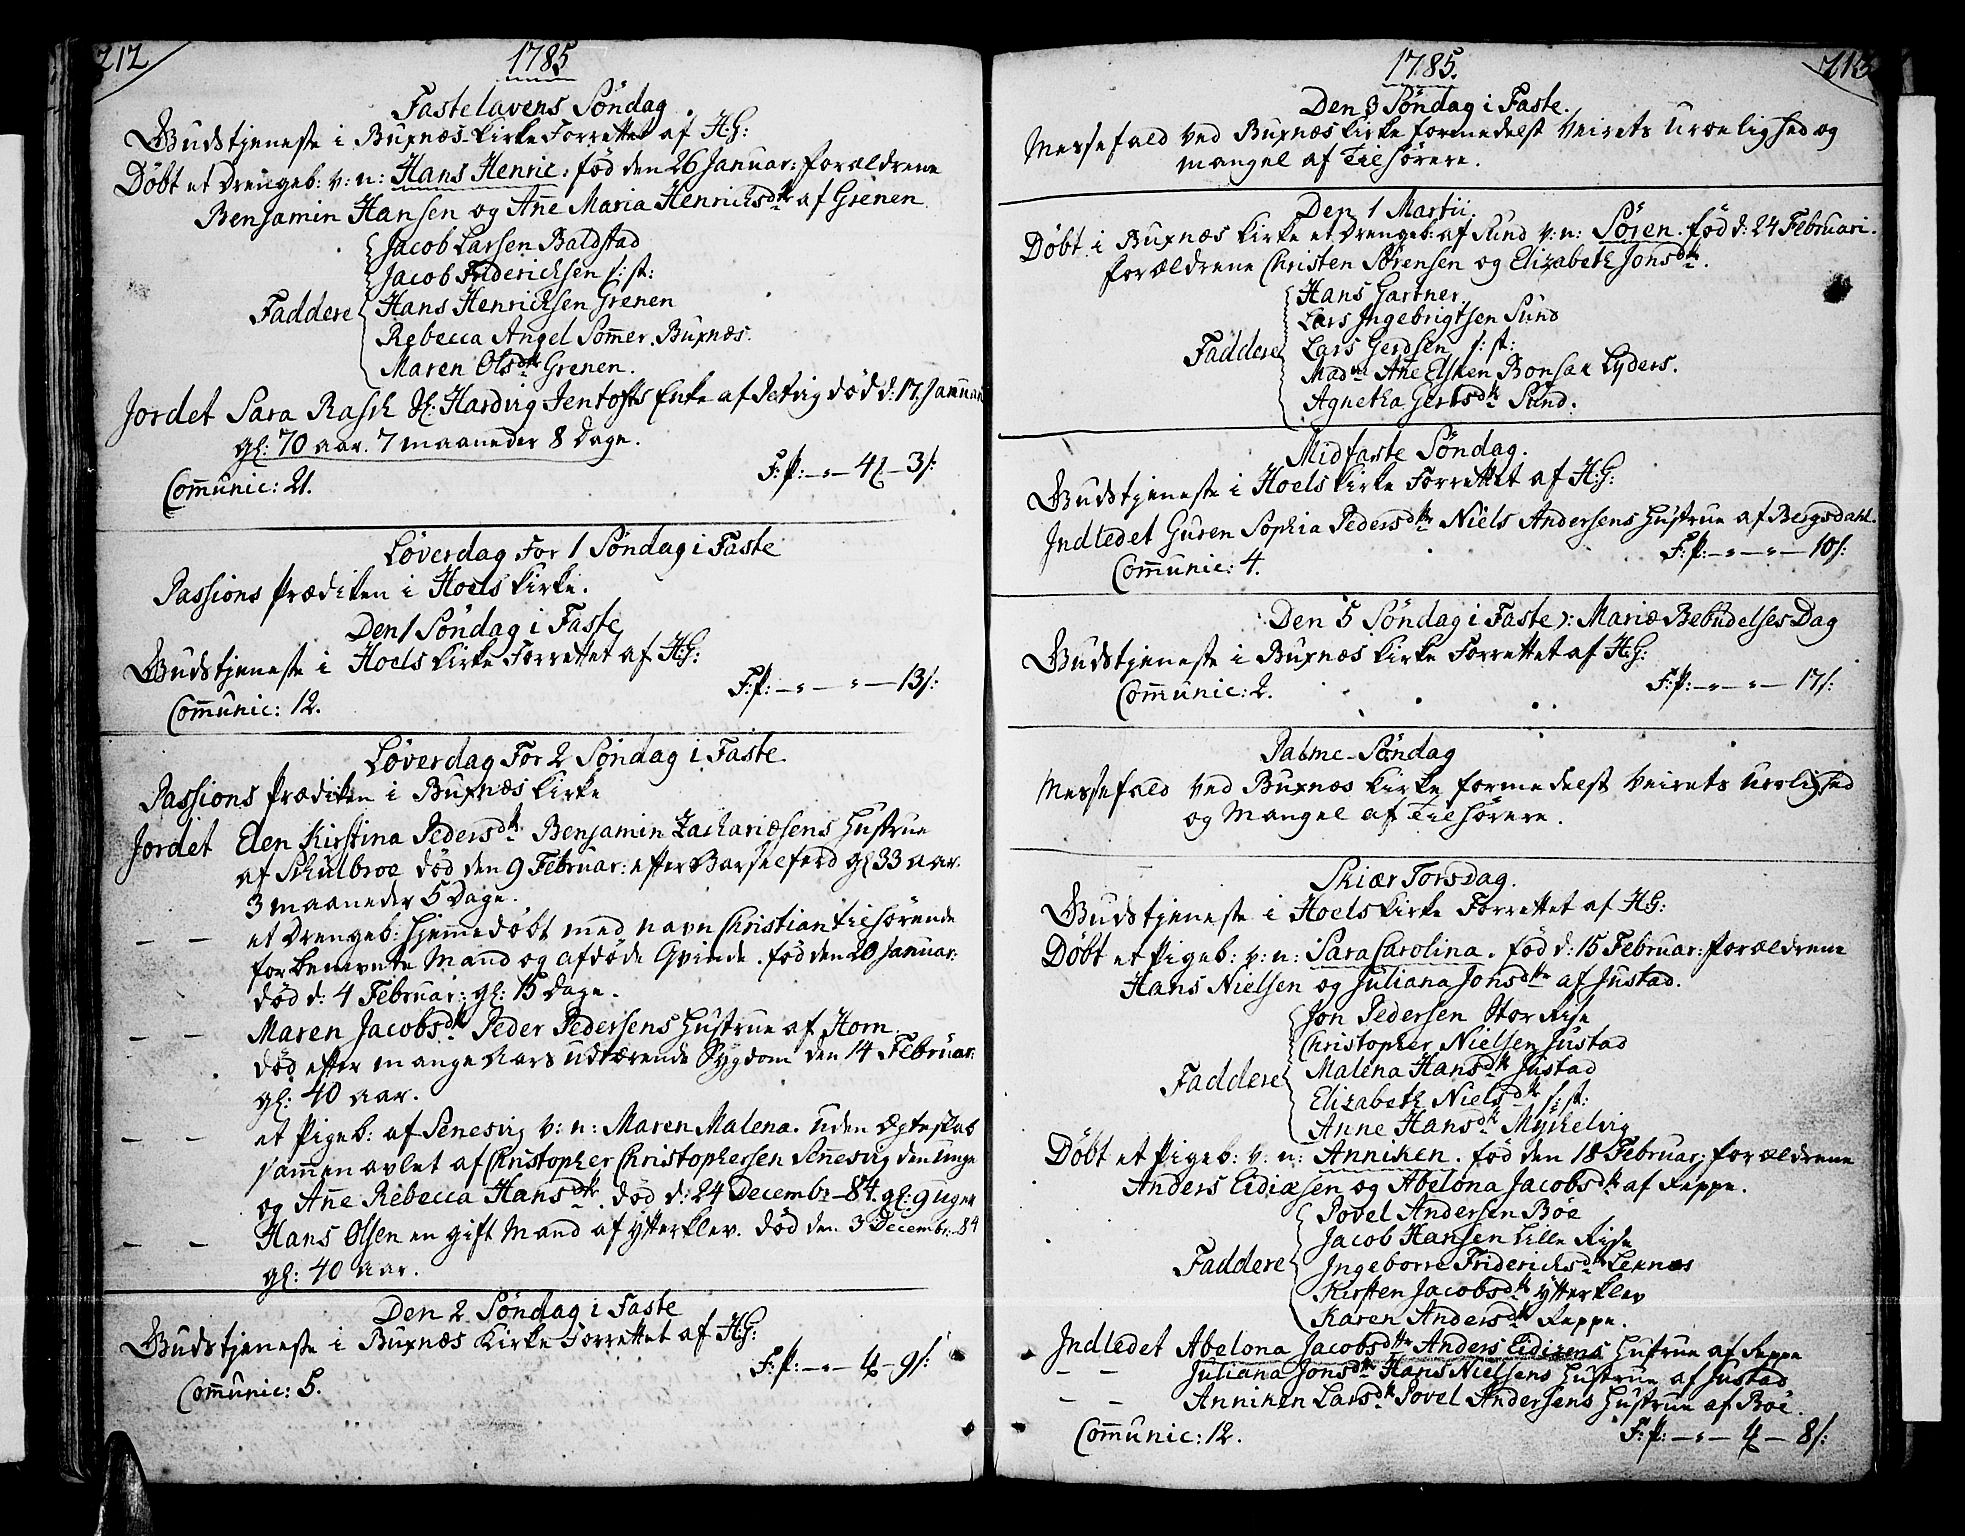 212
1785
Fastelavens Søndag
Gudstjeneste i Buxnæs Kirke Forrettet af H:G:
Døbt et Drengeb: v: n: Hans Henric, fød den 26 Januar: forældrene
Benjamin Hansen og Anne Maria Henrichsdtr af Grenen
Jacob Larsen Baldstad
Jacob Fridericksen s: st:
Faddere Hans Henricksen Grenen
Rebecca Angel Sommer. Buxnæs.
Maren Olsdtr Grenen.
Jordet Sara Rasch Hardvig Jentofts Enke af Petvig død d: 17. Januar
gl: 70 aar. 7 maaneder 8 Dage.
F: P: — " — 4 — 3 s:
Communic: 21.
Løverdag For 1 Søndag i Faste
Passions Prædiken i Hoels Kirke.
Den 1 Søndag i Faste
Gudstjeneste i Hoels Kirke Forrettet af H:G:
F: P: — " — " — 13 s:
Communic: 12.
Løverdag For 2 Søndag i Faste
Passions Prædiken i Buxnæs Kirke
Jordet Elen Kirstina Pedersdtr Benjamin Zachariæsens Hustrue
af Schulbroe død den 9 Februar: efter Barselferd gl 33 aar
3 maaneder 5 Dage.
— — et Drengeb: hjemmedøbt med navn Christian tilhørende
forbenevnte Mand og afdøde Qvinde. fød den 20 Januar:
død d: 4 Februar: gl: 15 Dage.
— — Maren Jacobsdtr Peder Pedersens Hustrue af Horn.
død efter mange Aars udtærende Sygdom den 14 Februar:
gl: 40 aar.
— — et Pigeb: af Senesvig v: n: Maren Malena. uden Ægteskab
sammen avlet af Christopher Christophersen Sennesvig den unge
og Anne Rebecca Hansdtr. død d: 24 Decembr — 84. gl: 9 uger
— — Hans Olsen en gift Mand af Ytterklev. død den 3 Decembr. 84
gl: 40 aar.
Den 2 Søndag i Faste
Gudstjeneste i Buxnæs Kirke Forrettet af H:G:
F: P: — " — 4 — 9 s:
Communic: 5.
213
1785.
Den 3 Søndag i Faste.
Messefald ved Buxnæs Kirke formedelst Veirets Uroelighed og
mangel af Tilhørere.
Den 1 Martii.
Døbt i Buxnæs Kirke et Drengeb: af Sund v: n: Sören. fød d: 24 Februari.
forældrene Christen Sørensen og Elizabeth Jonsdtr.
Hans Gartner
Lars Ingebrigtsen Sund
Faddere Lars Gerdsen s: st:
Madme Ane Elsken Bonsak Lyders.
Agnetha Gertsdtr Sund.
Midfaste Søndag.
Gudstjeneste i Hoels Kirke Forrettet af H:G:
Indledet Guren Sophia Pedersdtr Niels Andersens Hustrue af Bergsdahl.
F: P: — " — " — 10 s:
Communic: 4.
Den 5 Søndag i Faste ): Mariæ Bebudelses Dag
Gudstjeneste i Buxnæs Kirke Forrettet af H:G:
F: P: — " — " — 17 s:
Communic: 2.
Palme-Søndag
Messefald ved Buxnæs Kirke formedelst Veirets Urolighed
og Mangel af Tilhørere.
Skiær Torsdag.
Gudstjeneste i Hoels Kirke Forrettet af H:G:
Døbt et Pigeb: v: n: Sara Carolina. fød d: 15 Februar: forældrene
Hans Nielsen og Juliana Jonsdtr af Justad.
Jon Pedersen Stor Rise
Christopher Nielsen Justad
Faddere Malena Hansdtr Justad
Elizabeth Nielsdtr s: st:
Anne Hansdtr Myckelvig
Døbt et Pigeb: v: n: Anniken. fød den 18 Februar: forældrene
Anders Eidiæsen og Abelona Jacobsdtr af Reppe.
Povel Andersen Böe
Jacob Hansen Lille Rise
Faddere Ingeborre Fridericksdtr Leknæs
Kirsten Jacobsdtr Ytterklev
Karen Andersdtr Reppe.
Indledet Abelona Jacobsdtr Anders Eidisens Hustrue af Reppe
— — Juliana Jonsdtr Hans Nielsens Hustrue af Justad
— — Anniken Larsdtr Povel Andersens Hustrue af Böe.
Communic: 12.
F: P: — " — 4 — 8 s: